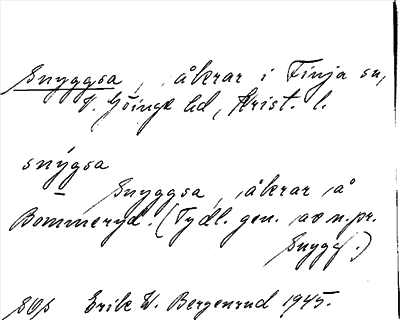 Snyggsa, åkrar i Finja sn,
V. Göinge hd, Krist. l.
snýgsa
Snyggsa, åkrar å
Bommeryd. (Tydl. gen. av n.pr.
Snygg.)
SOs Erik W. Bergenrud 1945.